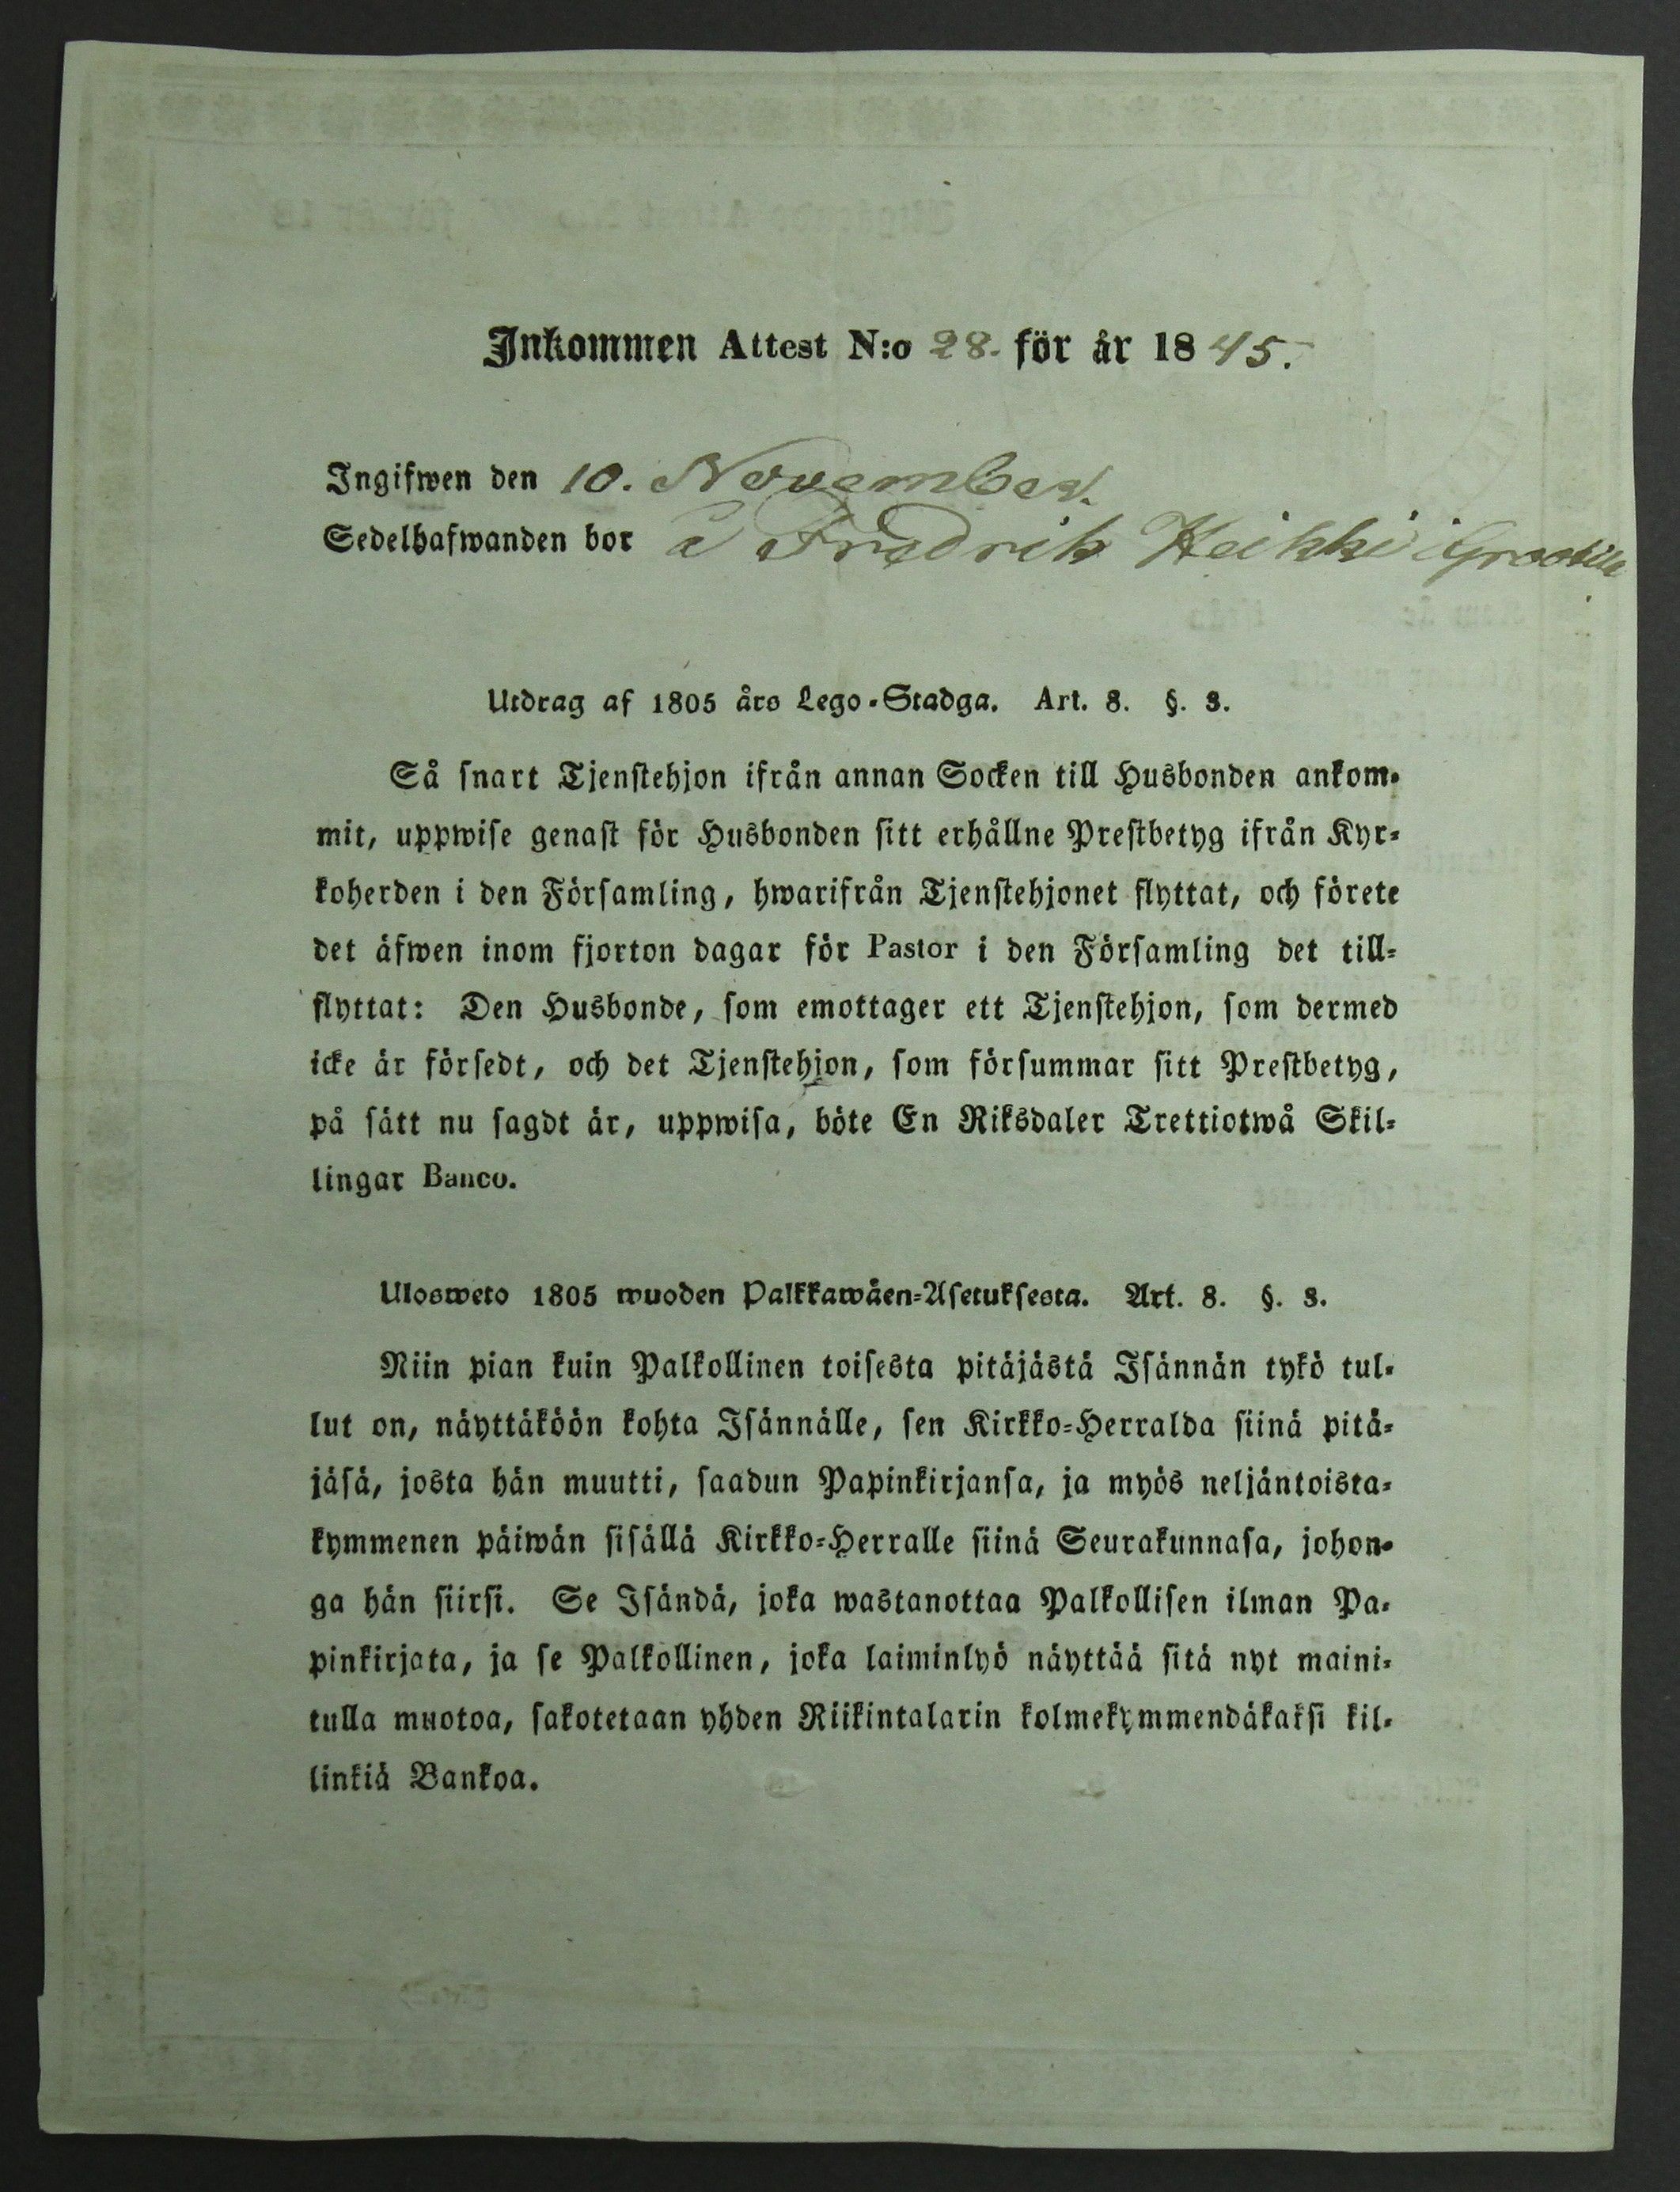 Inkommen Attest N:o 28. för år 1845.
Ingifwen den 10. November.
Sedelhafwanden bor å Fredrik Heikki i
Utdrag af 1805 års Lego-Stadga. Art. 8. §. 3.
Så snart Tjenstehjon ifrån annan Socken till Husbonden ankom-
mit, uppwise genast för Husbonden sitt erhållne Prestbetyg ifrån Kyr-
koherden i den Församling, hwarifrån Tjenstehjonet flyttat, och förete
det äfwen inom fjorton dagar för Pastor i den Församling det till-
flyttat: Den Husbonde, som emottager ett Tjenstehjon, som dermed
icke är försedt, och det Tjenstehjon, som försummar sitt Prestbetyg,
på sätt nu sagdt är, uppwisa, böte En Riksdaler Trettiotwå Skil-
lingar Banco.
Ulosweto 1805 wuoden Palkkawäen-Asetuksesta. Art. 8. §. 3.
Niin pian kuin Palkollinen toisesta pitäjästä Isännän tykö tul-
lut on, näyttäköön kohta Isännälle, sen Kirkko-Herralda siinä pitä-
jäsä, josta hän muutti, saadun Papinkirjansa, ja myös neljäntoista-
kymmenen päiwän sisällä Kirkko-Herralle siinä Seurakunnasa, johon-
ga hän siirsi. Se Isändä, joka wastanottaa Palkollisen ilman Pa-
pinkirjata, ja se Palkollinen, joka laiminlyö näyttää sitä nyt maini-
tulla muotoa, sakotetaan yhden Riikintalarin kolmekymmendäkaksi kil-
linkiä Bankoa.